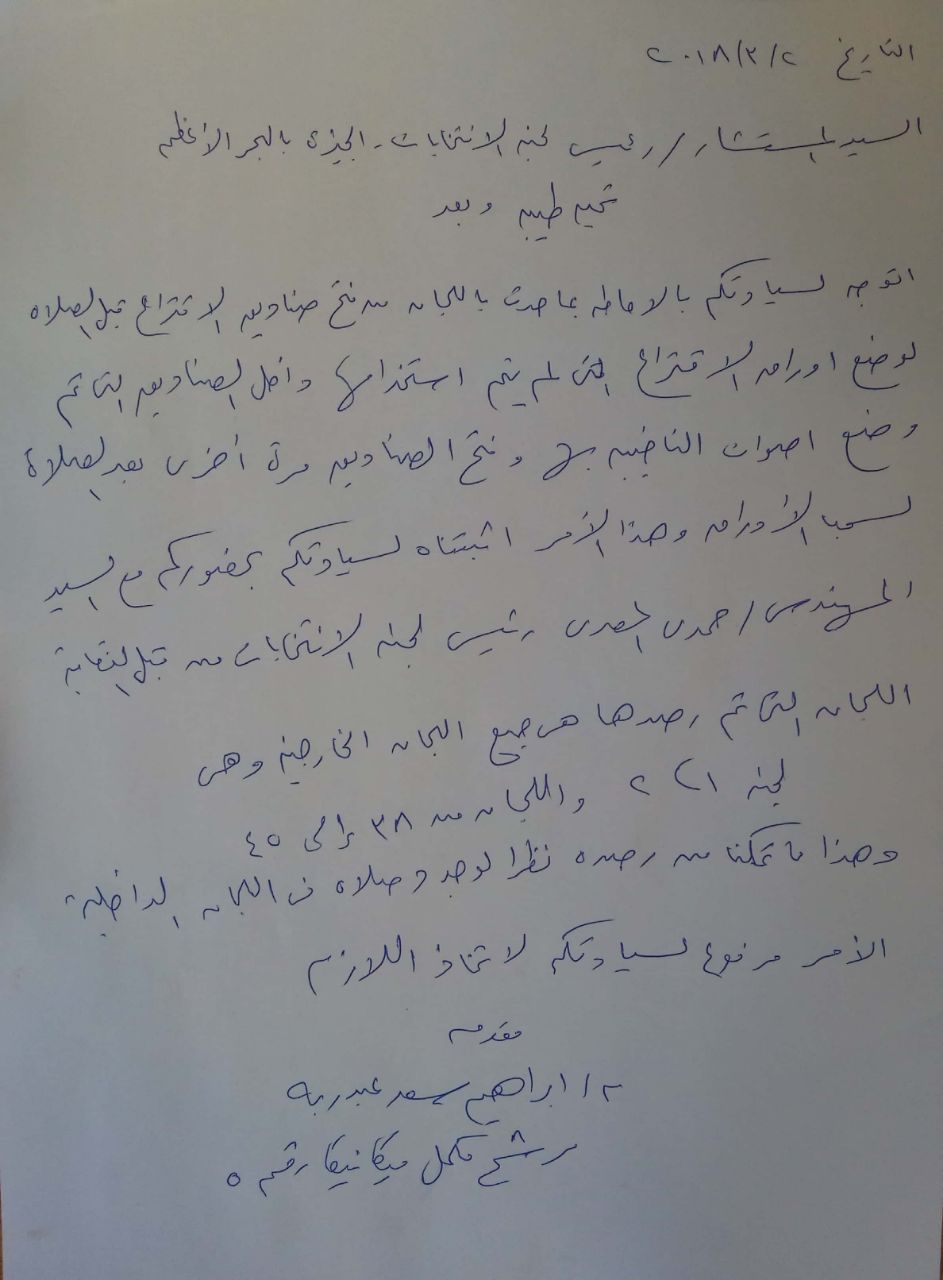 التاريخ ٢٠١٨/٣/٢
السيد المستشار / رئيس لجنة الانتخابات - الجيزة بالبحر الأعظم
تحيه طيبه وبعد
اتوجه لسيادتكم بالاحاطه بما حدث باللجان من فتح صناديق الاقتراع قبل الصلاه
لوضع اوراق الاقتراع التى لم يتم استخدامها داخل الصناديق التى تم
وضع اصوات الناخبين بها وفتح الصناديق مرة أخرى بعد الصلاة
لسحب الأوراق وهذا الأمر اثبتناه لسيادتكم بحضوركم مع السيد
المهندس / حمدى رئيس لجنة الانتخابات من قبل النقابة
اللجان التى تم رصدها هى جميع اللجان الخارجية وهى
لجنه ١ ، ٢ واللجان من ٣٨ إلى ٤٥
وهذا ما تمكنا من رصده نظرا لوجود صلاه فى اللجان الداخلية
الأمر مرفوع لسيادتكم لاتخاذ اللازم
مقدمه
م / ابراهيم سعد عبدربه
مرشح مكمل ميكانيكا رقم ٥